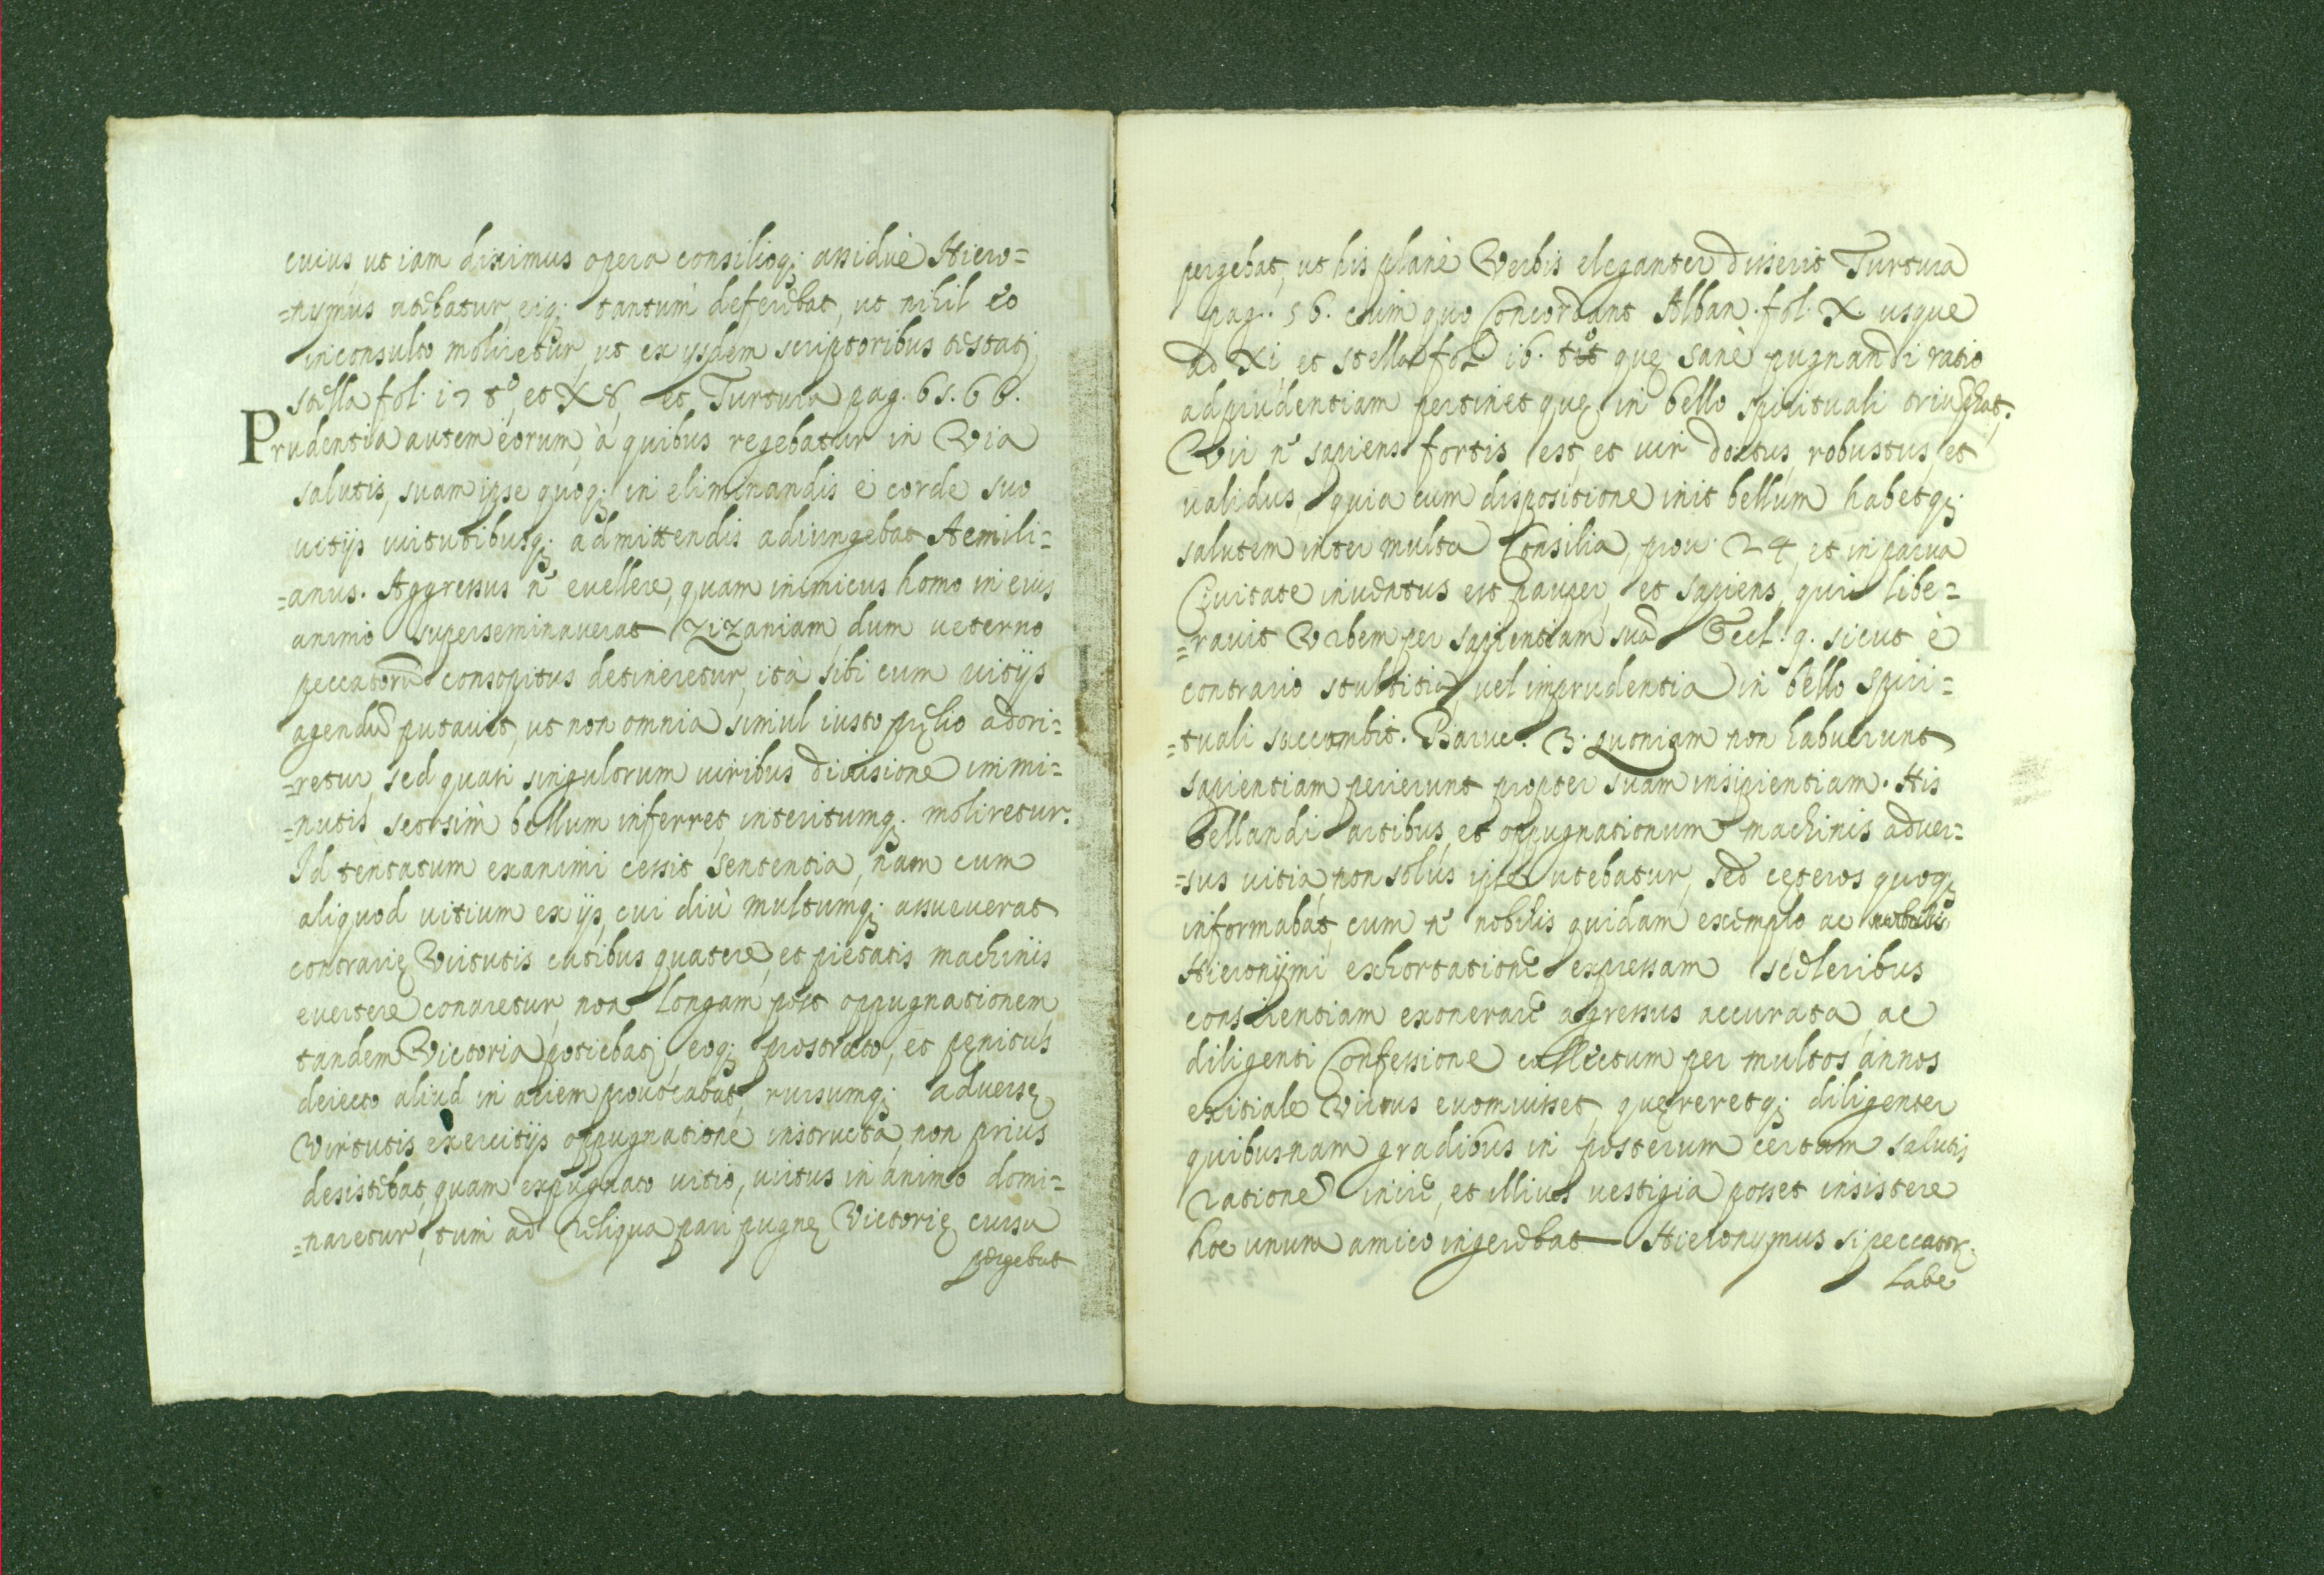 cuius ut iam diximus opera consilioq; assidue Hiero=
=nymus utebatur, eiq; tantum deferebat, ut nihil eo
inconsulto moliretur, ut ex ysdem scriptoribus testatj
stella fol. 17 tº, et X8, et Turtura pag. 65. 66.
Prudentia autem eorum, à quibus regebatur in Via
salutis, suam ipse quoq; in eliminandis è corde suo
vitijs virtutibusq; admittendis adiungebat Aemili=
=anus. Aggressus n' euellere, quam inimicus homo in eius
animo superseminauerat zizaniam dum ueterno
peccatorũ consopitus detineretur, ità sibi cum vitijs
agendũ putauit, ut non omnia simul iusto pręlio adori=
=retur, sed quasi singulorum uiribus diuisione immi=
=nutis, seorsim bellum inferret interitumq; moliretur.
Id tentatum exanimi cessit sententia, nam cum
aliquod vitium ex ijs, cui diù multumq; assueuerat
contrarię Virtutis ictibus quatere, et pietatis machinis
euertere conaretur, non longam post oppugnationem
tandem Victoria potiebatj, eoq; prostrato, et pęnitus
deiecto aliud in aciem prouocabat, rursumq; aduersę
Virtutis exercitijs oppugnatione instructa, non prius
desistebat, quam expugnato vitio, uirtus in animo domi=
=naretur, tum ad reliqua pari pugnę Victorię cursu
pergebat
pergebat, ut his planè Verbis eleganter disserit Turtura
pag. 56. cum quo Concordant Alban. fol. X. usque
ad XI et stella fol 16. tº que sanè pugnandi ratio
ad prudentiam pertinet quę in bello spirituali triũphat;
Vir n' sapiens fortis est, et uir doctus, robustus, et
ualidus, quia cum dispositione init bellum habetq;
salutem inter multa Consilia, prou. 24, et in parua
Ciuitate inuentus est pauper, et sapiens, qui libe=
=rauit Vrbem per sapientiam suã Eccl. 9. sicut è
contrario stultitia, uel imprudentia in bello spiri=
=tuali succumbit. Baruc. 3. quoniam non habuerunt
sapientiam perierunt propter suam insipientiam. His
bellandi artibus, et oppugnationum machinis aduer=
=sus vitia non solus ipse utebatur, sed cęteros quoq;
informabat, cum n' nobilis quidam exemplo ac
Hieronijmi exhortatione expressam sceleribus
conscientiam exonerare agressus accurata, ac
diligenti Confessione collectum per multos annos
exitiale Virus euomuisset, quęreretq; diligenter
quibusnam gradibus in posterum certam saluti
rationẽ inire, et illius uestigia posset insistere
hoc unum amico ingerebat Hieronymus si peccator;
Labe